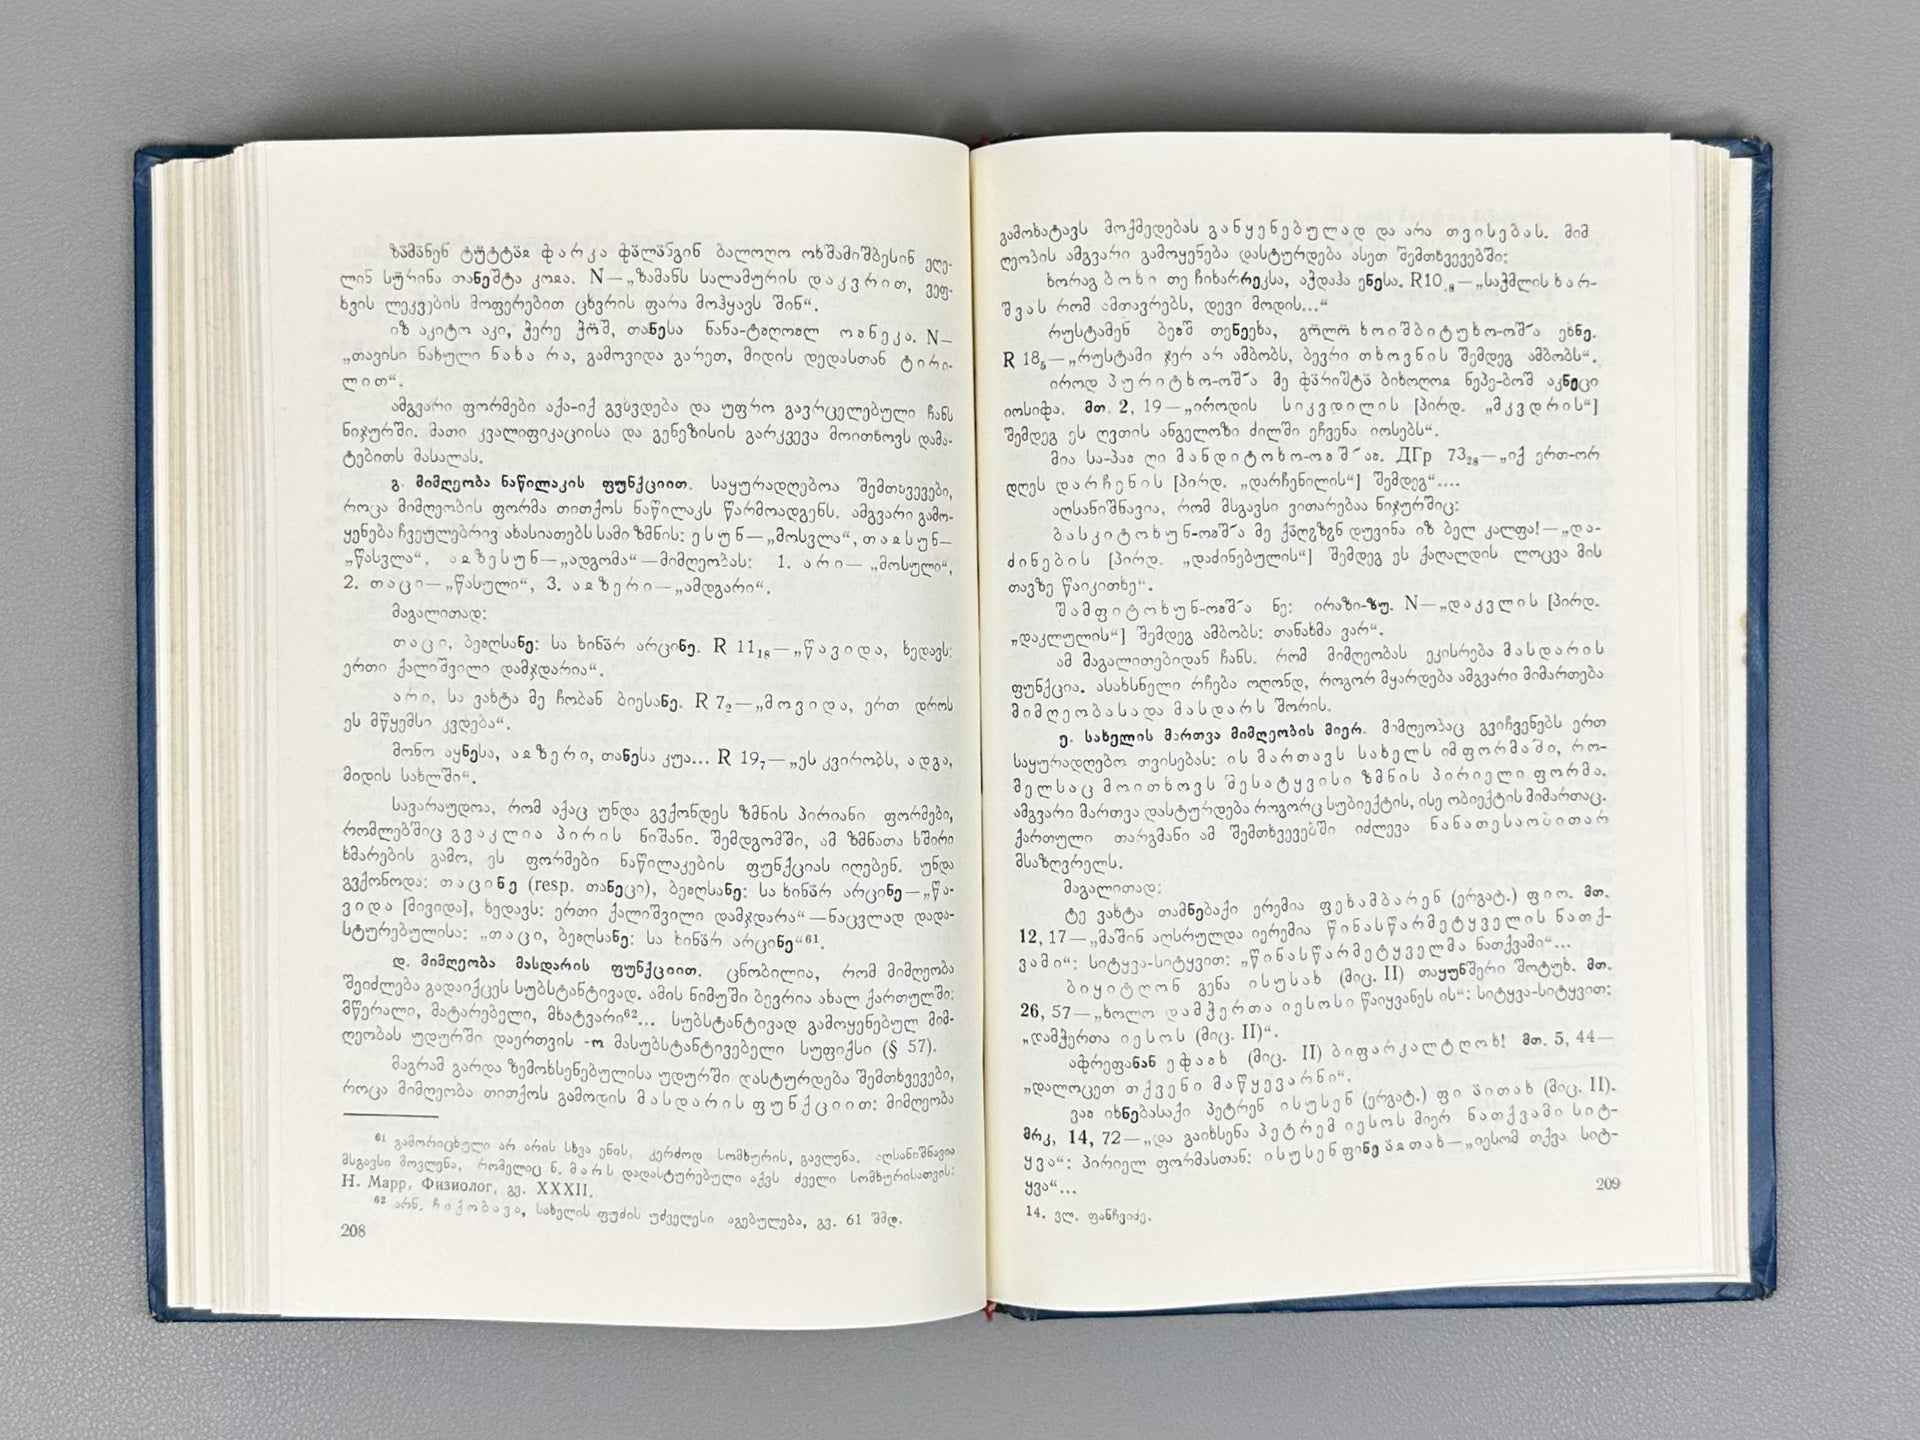 ზა̈მა̈ნენ ტუ̈ტტა̈ჲ ფარკა ფა̈ლა̈ნგინ ბალოღო ოხშამიშბესინ ეღე-
ლინ სურინა თანეშტა კოჲა. N—„ზამანს სალამურის დაკვრით, ვეფ-
ხვის ლეკვების მოფერებით ცხვრის ფარა მოჰყავს შინ“.
იზ აკიტო აკი, ჭერე ნანა-ტჲღოჲლ ოჲნეკა. N—
„თავისი ნახული ნახა რა, გამოვიდა გარეთ, მიდის დედასთან ტირი-
ლით“.
ამგვარი ფორმები აქა-იქ გვხვდება და უფრო გავრცელებული ჩანს
ნიჯურში. მათი კვალიფიკაციისა და გენეზისის გარკვევა მოითხოვს დამა-
ტებითს მასალას.
გ. მიმღეობა ნაწილაკის ფუნქციით. საყურადღებოა შემთხვევები,
როცა მიმღეობის ფორმა თითქოს ნაწილაკს წარმოადგენს. ამგვარი გამო-
ყენება ჩვეულებრივ ახასიათებს სამი ზმნის: ესუნ—„მოსვლა“, თაჲსუნ—
„წასვლა“, აჲზესუნ—„ადგომა“—მიმღეობას: 1. არი—„მოსული“,
2. თაცი—„წასული“, 3. აჲზერი—„ამდგარი“.
მაგალითად:
თაცი, ბეჲღსანე: სა ხინა̈რ არცინე. R 11₁₈—„წავიდა, ხედავს:
ერთი ქალიშვილი დამჯდარია“.
არი, სა ვახტა მე ჩობან ბიესანე. R 7₂—„მოვიდა, ერთ დროს
ეს მწყემსი კვდება“.
მონო აყნესა, აჲზერი, თანესა კუა... R 19₇—„ეს კვირობს, ადგა,
მიდის სახლში“.
სავარაუდოა, რომ აქაც უნდა გვქონდეს ზმნის პირიანი ფორმები,
რომლებშიც გვაკლია პირის ნიშანი. შემდგომში, ამ ზმნათა ხშირი
ხმარების გამო, ეს ფორმები ნაწილაკების ფუნქციას იღებენ. უნდა
გვქონოდა: თაცინე (resp. თანეცი), ბეჲღსანე: სა ხინა̈რ არცინე—„წა-
ვიდა [მივიდა], ხედავს: ერთი ქალიშვილი დამჯდარა“—ნაცვლად დადა-
სტურებულისა: „თაცი, ბეჲღსანე: სა ხინა̈რ არცინე“⁶¹.
დ. მიმღეობა მასდარის ფუნქციით. ცნობილია, რომ მიმღეობა
შეიძლება გადაიქცეს სუბსტანტივად. ამის ნიმუში ბევრია ახალ ქართულში:
მწერალი, მატარებელი, მხატვარი⁶²... სუბსტანტივად გამოყენებულ მიმ-
ღეობას უდურში დაერთვის -ო მასუბსტანტივებელი სუფიქსი (§ 57).
მაგრამ გარდა ზემოხსენებულისა უდურში დასტურდება შემთხვევები,
როცა მიმღეობა თითქოს გამოდის მასდარის ფუნქციით: მიმღეობა
⁶¹ გამორიცხული არ არის სხვა ენის, კერძოდ სომხურის, გავლენა. აღსანიშნავია
მსგავსი მოვლენა, რომელიც ნ. მარს დადასტურებული აქვს ძველი სომხურისათვის:
Н. Марр, Физиолог, გვ. XXXII.
⁶² არნ. ჩიქობავა, სახელის ფუძის უძველესი აგებულება, გვ. 61 შმდ.
208
გამოხატავს მოქმედებას განყენებულად და არა თვისებას. მიმ
ღეობის ამგვარი გამოყენება დასტურდება ასეთ შემთხვევებში:
ხორაგ ბოხი თე ჩიხარრექსა, აჟდაჰა ენესა. R10.₈—„საჭმლის ხარ-
შვას რომ ამთავრებს, დევი მოდის...“
რუსტამენ ბეჲშ თენეეხა, გო̈ლო̈ ხოიშბიტუხო-ოშ́ა ეხნე.
R 18₅—„რუსტამი ჯერ არ ამბობს, ბევრი თხოვნის შემდეგ ამბობს“.
იროდ პურიტხო-ოშ́ა მე ფა̈რიშტა̈ ბიხოღოჲ ნეპე-ბოშ აკნეცი
იოსიფა. მთ. 2, 19—„იროდის სიკვდილის [პირდ. „მკვდრის“]
შემდეგ ეს ღვთის ანგელოზი ძილში ეჩვენა იოსებს“.
მია სა-პაჲ ღი მანდიტოხო-ოჲშ́აჲ. ДГр 73₂₈—„იქ ერთ-ორ
დღეს დარჩენის [პირდ. „დარჩენილის“] შემდეგ“....
აღსანიშნავია, რომ მსგავსი ვითარებაა ნიჯურშიც:
ბასკიტოხუნ-ოჲშ́ა მე დუვინა იზ ბელ კალფა!—„და-
ძინების [პირდ. „დაძინებულის“] შემდეგ ეს ქაღალდის ლოცვა მის
თავზე წაიკითხე“.
შამფიტოხუნ-ოჲშ́ა ნე: ირაზი-ზუ. N—„დაკვლის [პირდ.
„დაკლულის“] შემდეგ ამბობს: თანახმა ვარ“.
ამ მაგალითებიდან ჩანს. რომ მიმღეობას ეკისრება მასდარის
ფუნქცია. ასახსნელი რჩება ოღონდ, როგორ მყარდება ამგვარი მიმართება
მიმღეობასა და მასდარს შორის.
ე. სახელის მართვა მიმღეობის მიერ. მიმღეობაც გვიჩვენებს ერთ
საყურადღებო თვისებას: ის მართავს სახელს იმ ფორმაში, რო-
მელსაც მოითხოვს შესატყვისი ზმნის პირიელი ფორმა.
ამგვარი მართვა დასტურდება როგორც სუბიექტის, ისე ობიექტის მიმართაც.
ქართული თარგმანი ამ შემთხვევებში იძლევა ნანათესაობითარ
მსაზღვრელს.
მაგალითად:
ტე ვახტა თამნებაქი ერემია ფეხამბარენ (ერგატ.) ფიო. მთ.
12, 17—„მაშინ აღსრულდა იერემია წინასწარმეტყველის ნათქ-
ვამი“: სიტყვა-სიტყვით: „წინასწარმეტყველმა ნათქვამი“...
ბიყიტღონ გენა ისუსახ (მიც. II) თაყუნშერი შოტუხ. მთ.
26, 57—„ხოლო დამჭერთა იესოსი წაიყვანეს ის“: სიტყვა-სიტყვით:
„დამჭერთა იესოს (მიც. II)“.
აფრეფანან ეფაჲხ (მიც. II) ბიფარკალტღოხ! მთ. 5, 44—
„დალოცეთ თქვენი მაწყევარნი“.
ვაჲ იხნებასაქი პეტრენ ისუსენ (ერგატ.) ფი ა̈ითახ (მიც. II).
მრკ, 14, 72—„და გაიხსენა პეტრემ იესოს მიერ ნათქვამი სიტ-
ყვა“: პირიელ ფორმასთან: ისუსენ ფინე ა̈ჲთახ—„იესომ თქვა სიტ-
ყვა“...
209
14. ვლ. ფანჩვიძე.